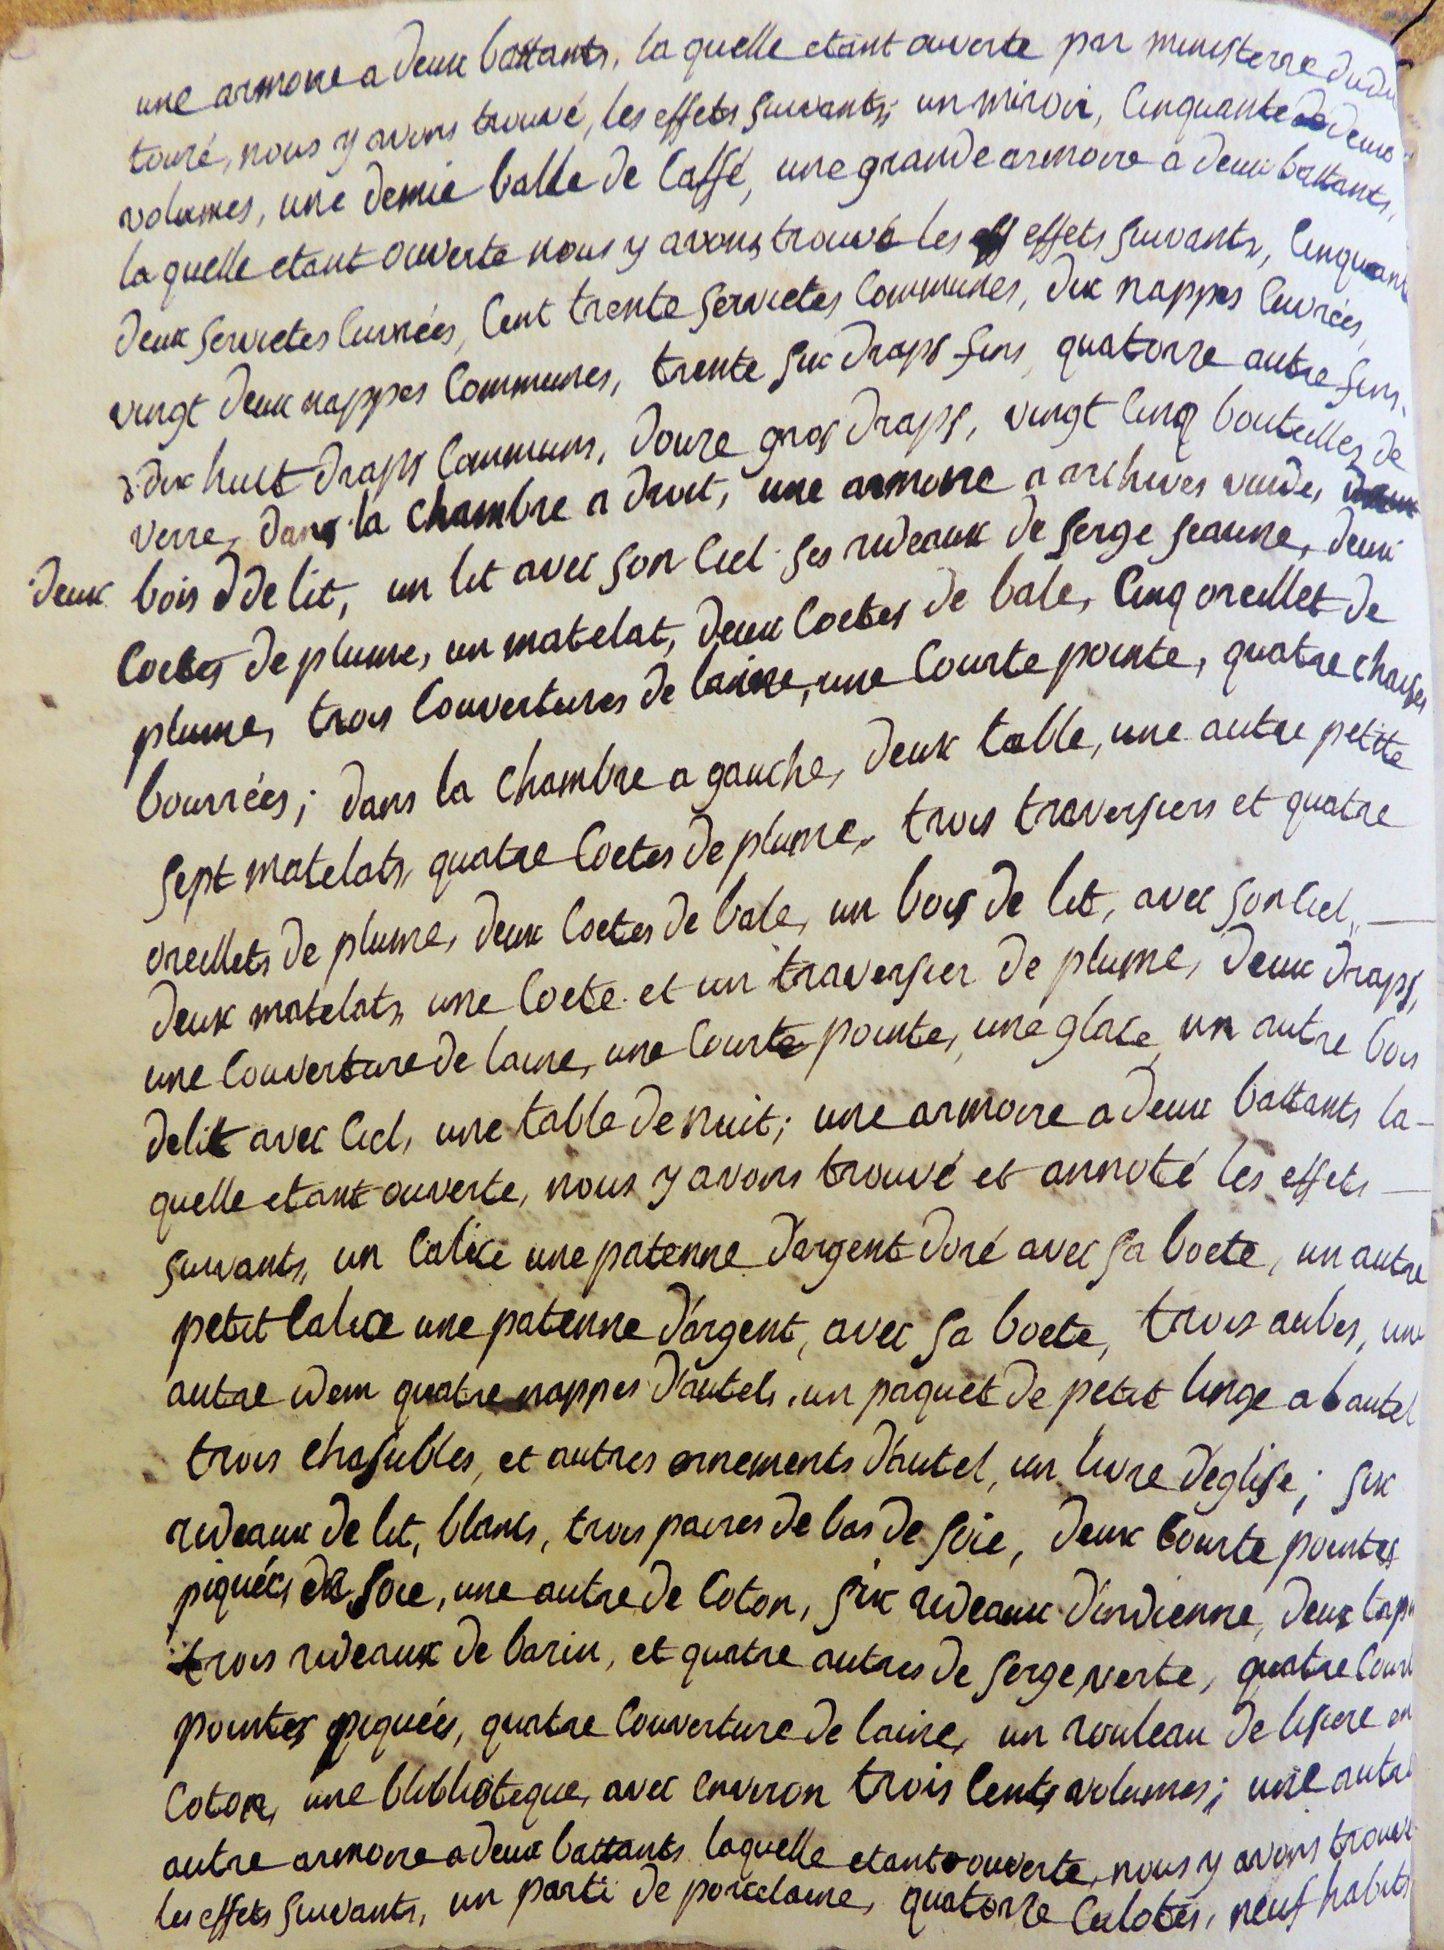 une armoire a deux battants, la quelle etant ouverte par ministerre dudit
touré, nous y avons trouvé, les effets suivants; un miroir, Cinquante deux
volumes, une demie balle de Caffé, une grande armoire a deux battants,
la quelle etant ouverte nous y avons trouvé les effets suivants, Cinquante
deux servietes luvrées, Cent trente servietes Communes, dix nappes luvrées,
vingt deux nappes Communes, trente six draps fins, quatorze autre fins,
dix huit draps Communs, douze gros draps, vingt Cinq bouteilles de
verre, dans la chambre a droit, une armoire a archives vuide,
deux bois de lit, un lit avec son Ciel ses rideaux de serge jeaune, deux
Coetes de plume, un matelat, deux Coetes de bale, Cinq oreillet de
plume, trois Couvertures de laine, une Courte pointe, quatre chaises
bourrées; dans la chambre a gauche, deux table, une autre petite
sept matelats, quatre Coetes de plume, trois traversiers et quatre
oreillets de plume, deux Coetes de bale, un bois de lit, avec son Ciel,
deux matelats, une Coete et un traversier de plume, deux draps,
une Couverture de laine, une Courte pointe, une glace, un autre bois
de lit avec Ciel, une table de nuit; une armoire a deux battants la-
quelle etant ouverte, nous y avons trouvé et annoté les effets
suivants, un Calice une patenne d'argent doré avec sa boete, un autre
petit Calice une patenne d'argent, avec sa boete, trois aubes, une
autre idem quatre nappes d'autels, un paquet de petit linge a l'autel
trois chasubles, et autres ornements d'autel, un livre d'eglise; six
rideaux de lit, blancs, trois paires de bas de soie, deux Courte pointes
piquées de soie, une autre de Coton, six rideaux d'indienne, deux tapis
trois rideaux de bazin, et quatre autres de serge verte, quatre Courte
pointes piquées, quatre Couverture de laine, un rouleau de lisiere en
Coton, une bliblioteque, avec environ trois Cents volumes; une autre
autre armoire a deux battants laquelle etant ouverte, nous y avons trouvé
les effets suivants, un parti de porcelaine, quatorze Culotes, neuf habits